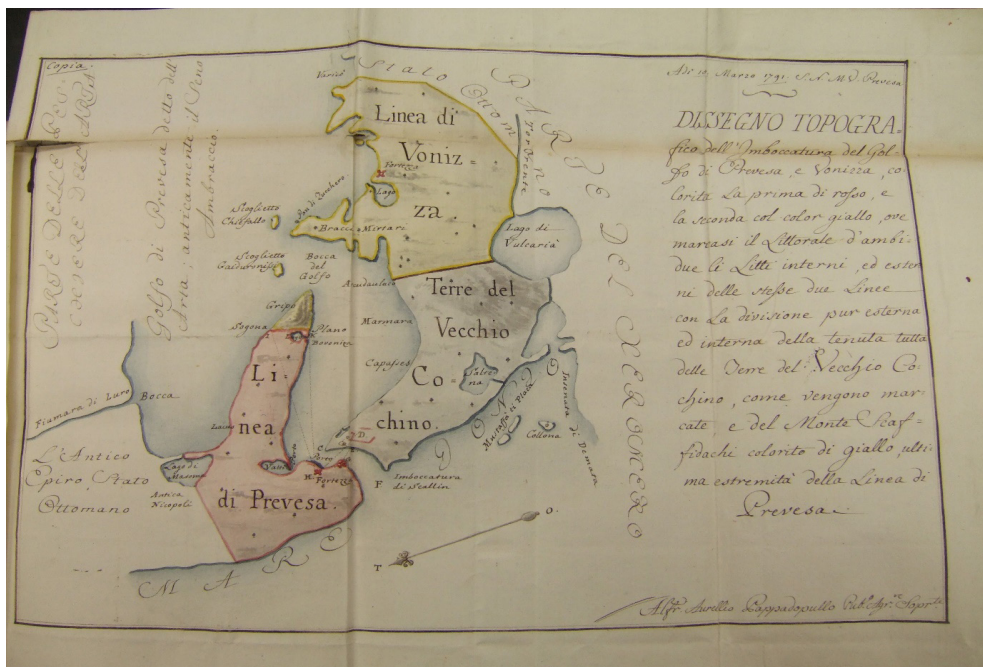 Copia.
Adi 10. Marzo 1791. S. N. M. V. Prevesa
DISSEGNO TOPOGRA-
fico dell'Imboccatura del Gol-
fo di Prevesa, e Vonizza, co-
lorita La prima di rosso, e
la seconda col color giallo, ove
marcasi il Littorale d'ambi-
due li Litti interni, ed ester-
ni delle stesse due Linee
con La divisione pur esterna
ed interna della tenuta tutta
delle Terre del Vecchio Co-
chino, come vengono mar-
cate, e del Monte Scaf-
fidachi colorito di giallo, ulti-
ma estremità della Linea di
Prevesa
Aurellio Pappadopullo
PARTE DELLE PES-
CHIERE DELL'ARTA
Golfo di Prevesa detto dell'
Arta; anticamente il Seno
Ambraccio.
Stato
Ottomano
PARTE DEL XEROMERO
Linea di
Voniz=
za
Fortezza
Lago
Bracca
Mirtari
Scoglietto
Chiefallo
Scoglietto
Gaiduronisi
Bocca
del
Golfo
Lago di
Vulcaria
Terre del
Vecchio
Co=
chino.
Marmara
Gripo
Sogona
Plano
Li=
nea
di Prevesa.
Fortezza
Fiumara di Luro
Bocca
Antica
Nicopoli
L'Antico
Epiro, Stato
Ottomano
Imboccatura
D
F
Insenata di Demata
MARE
O.
T